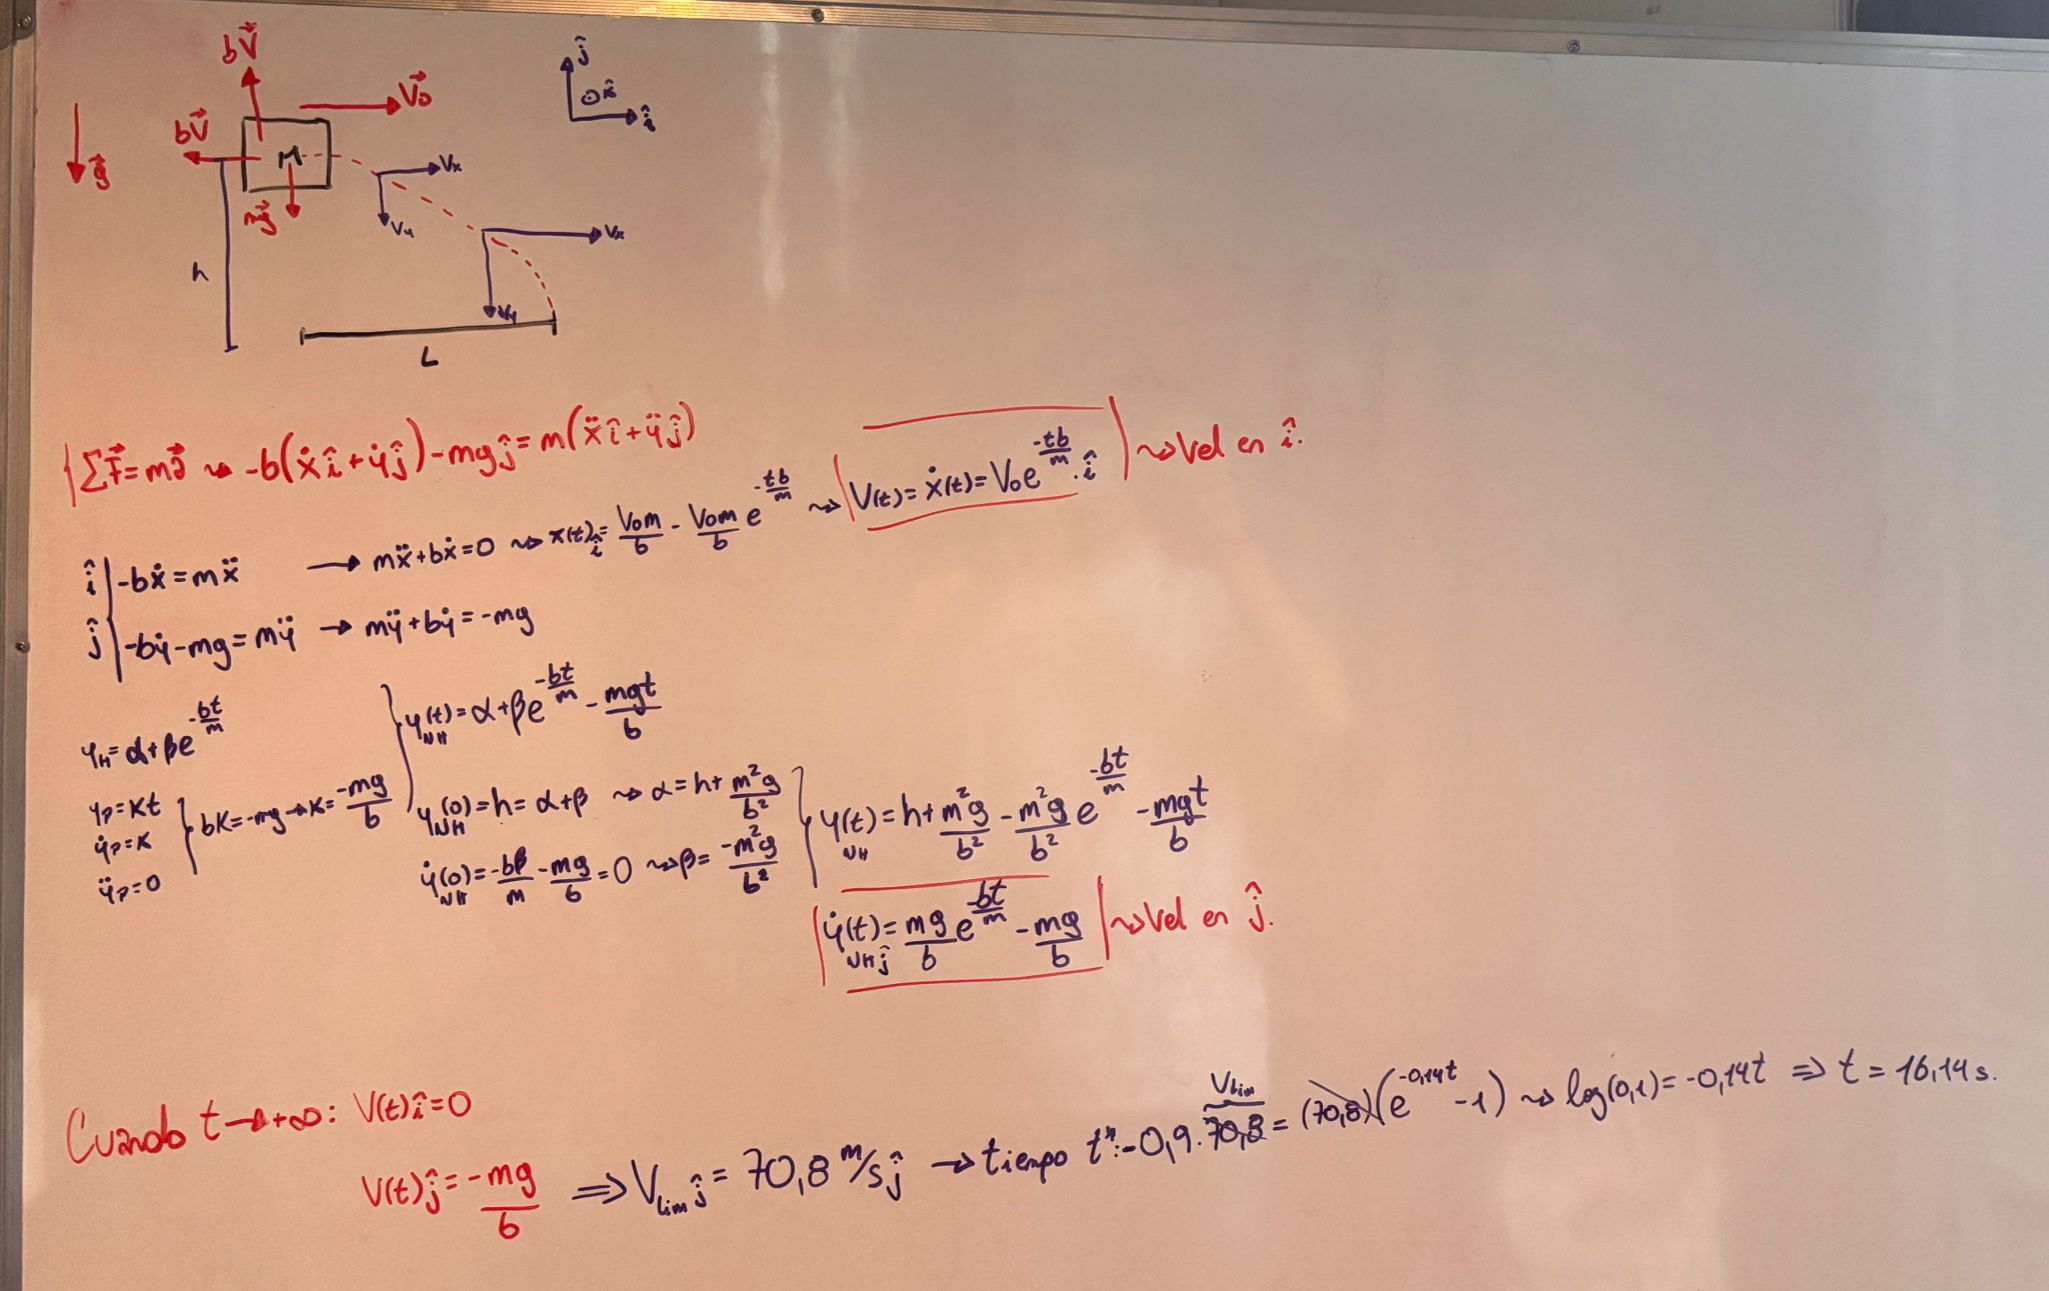 bV⃗
V⃗o
ĵ
k̂
î
bV⃗
g⃗
M
mg⃗
Vx
Vy
Vx
Vy
h
L
ΣF⃗=ma⃗ ⇝ -b(ẋî+ẏĵ)-mgĵ=m(ẍî+ÿĵ)
î | -bẋ=mẍ → mẍ+bẋ=0 ⇝ x(t)î = Vom/b - Vom/b e^(-tb/m) ⇝ V(t)=ẋ(t)=Voe^(-tb/m).î ⇝ Vel en î.
ĵ | -bẏ-mg=mÿ → mÿ+bẏ=-mg
yH=α+βe^(-bt/m)
yP=Kt
ẏP=K
ÿP=0
bK=-mg → K=-mg/b
yNH(t)=α+βe^(-bt/m) - mgt/b
yNH(0)=h=α+β ⇝ α=h+m²g/b²
ẏNH(0)=-bβ/m - mg/b=0 ⇝ β=-m²g/b²
yNH(t)=h+m²g/b² - m²g/b² e^(-bt/m) - mgt/b
ẏNHĵ(t)=mg/b e^(-bt/m) - mg/b ⇝ Vel en ĵ.
Cuando t→+∞: V(t)î=0
V(t)ĵ=-mg/b ⇒ Vlim ĵ=70,8 m/s ĵ → tiempo t*: -0,9.70,8=(70,8)(e^(-0,14t) -1) ⇝ log(0,1)=-0,14t ⇒ t=16,14s.
Vlim